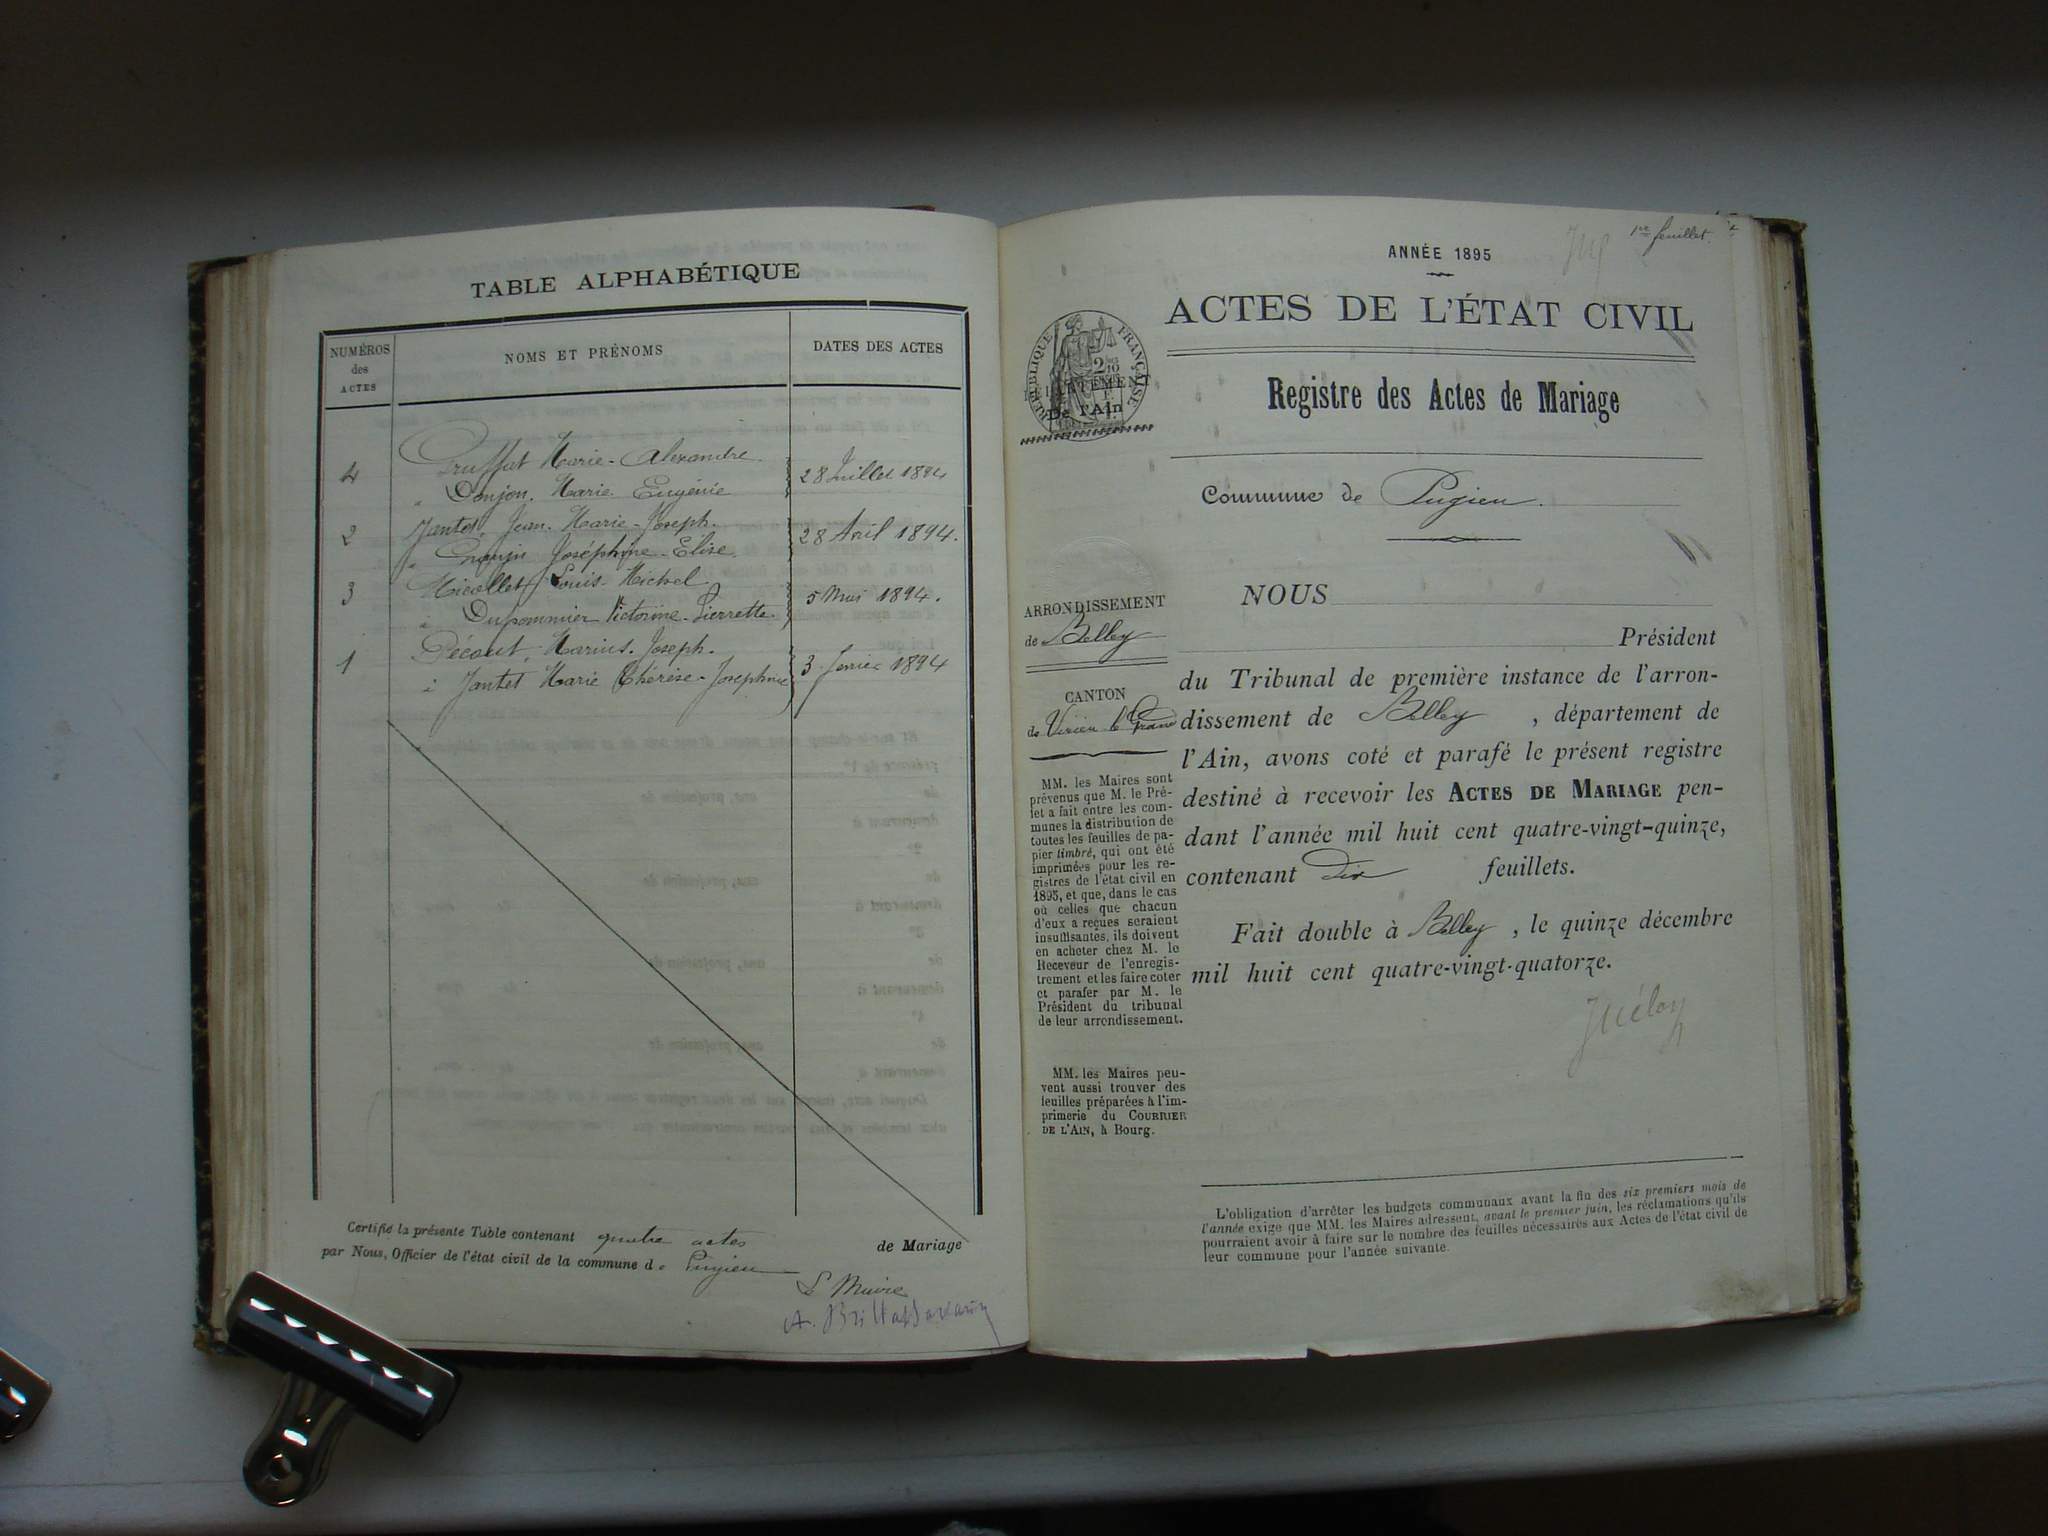 TABLE ALPHABÉTIQUE
NUMÉROS des ACTES
NOMS ET PRÉNOMS
DATES DES ACTES
4
Marie-Alexandre
28 Juillet 1894
Donjon, Marie Eugénie
2
Jantet, Jean-Marie-Joseph.
28 Avril 1894.
Joséphine-Elise.
3
Micollet Louis-Michel
5 Mai 1894.
Dupommier Victorine-Pierrette
1
Marius-Joseph.
3 fevrier 1894
à Jantet Marie Thérèse-Josephine
Certifié la présente Table contenant quatre actes de Mariage
par Nous, Officier de l'état civil de la commune de Pugieu
Le Maire
A. Brillat Savarin
1er feuillet.
ANNÉE 1895
ACTES DE L'ÉTAT CIVIL
RÉPUBLIQUE FRANÇAISE
2/10
De l'Ain
Registre des Actes de Mariage
Commune de Pugieu.
ARRONDISSEMENT
de Belley
CANTON
de Virieu le Grand
MM. les Maires sont
prévenus que M. le Pré-
fet a fait entre les com-
munes la distribution de
toutes les feuilles de pa-
pier timbré, qui ont été
imprimées pour les re-
gistres de l'état civil en
1895, et que, dans le cas
où celles que chacun
d'eux a reçues seraient
insuffisantes, ils doivent
en acheter chez M. le
Receveur de l'enregis-
trement et les faire coter
et parafer par M. le
Président du tribunal
de leur arrondissement.
MM. les Maires peu-
vent aussi trouver des
feuilles préparées à l'im-
primerie du COURRIER
DE L'AIN, à Bourg.
NOUS
Président
du Tribunal de première instance de l'arron-
dissement de Belley, département de
l'Ain, avons coté et parafé le présent registre
destiné à recevoir les ACTES DE MARIAGE pen-
dant l'année mil huit cent quatre-vingt-quinze,
contenant Dix feuillets.
Fait double à Belley, le quinze décembre
mil huit cent quatre-vingt-quatorze.
L'obligation d'arrêter les budgets communaux avant la fin des six premiers mois de
l'année exige que MM. les Maires adressent, avant le premier juin, les réclamations qu'ils
pourraient avoir à faire sur le nombre des feuilles nécessaires aux Actes de l'état civil de
leur commune pour l'année suivante.